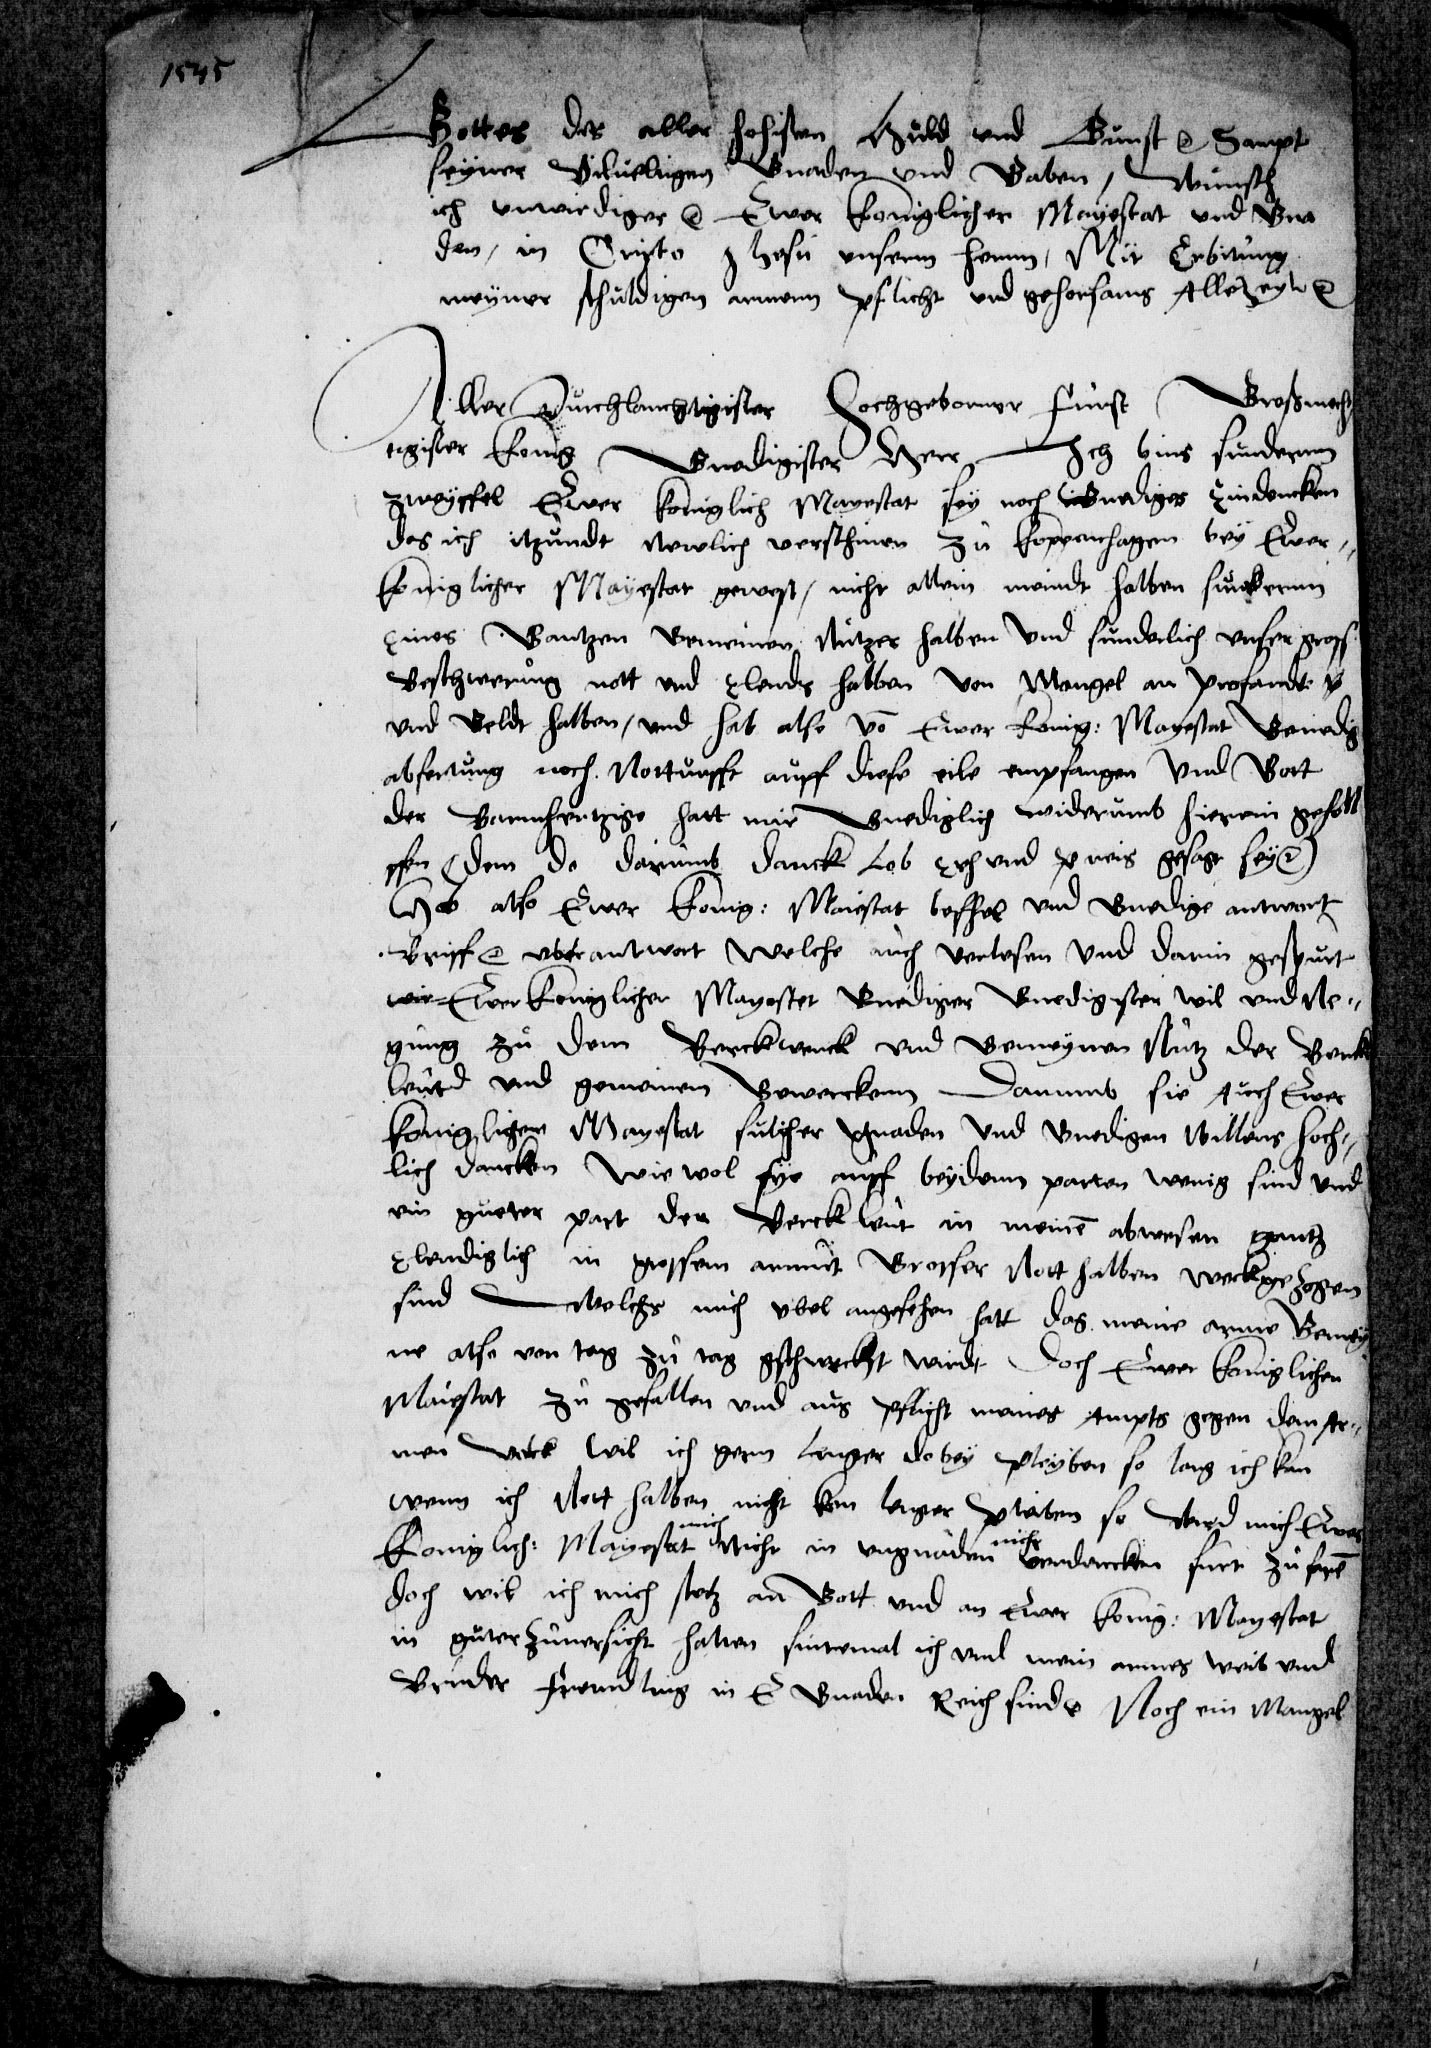 1545
Gottes des aller hohisten Huld und Gunst Sampt
seyner Gnaden und Gaben, wunsch
ich unwirdiger Ewer Koniglicher Mayestat und Gna
den, in Cristo Jhesu unserm herrn, Mit Erbitung
meyner schuldigen armen pflicht und gehorsams Allezeyt
Aller Durchlauchtigister Hochgeborner Furst Großmecht
igister Konig Gnedigister Herr Ich bins sunderen
zweyffel Ewer Koniglich Mayestat sey noch Gnediges Eindencken
das ich itzundt Newlich verschinen zu Koppenhagen bey Ewer
Koniglicher Mayestat gewest, nicht allein meindt halben sunderenn
eines Gantzen Gemeinen Nutzes halben Und sunderlich unser gross
beschwerung nott und Elendis halben von Mangel an profandt
und Geldt halben, und hab also vo Ewer Konig: Mayestat Genedig
abfertung noch Notturfft auff diese eile empfangen Und Gott
der Barmhertzige hatt mir Gnediglich widerumb hierein geholl
ffen (dem do darumb danck Lob Eh und preis gesagt sey)
Hab also Ewer Konig: Maiestat beffhel und Gnedige antwort
Briff uberantwort Welche auch verlesen Und darin gespurt
wir Ewer Koniglicher Mayestet Gnediger Gnedigister wil und Ne
gung zu dem Berckwerck und Gemeynen Nutz der Berck
leut und gemeinen Gewercken Darumb sie Auch Ewer
Konigligen Mayestat sulcher Gnaden Und Gnedigen Willens hoch
lich dancken Wie wol sye auff beydenn parten wenig sind und
ein gueter part der Berckleut in meine abwesen gantz
Elendiglich in grossem armut Grosser Nott halben weckgezogen
sind Welchs mich ubel angesehen hatt das meine arme Gemey
ne also von tag zu tag gschwecht wirdt Doch Ewer Koniglichen
Maiestat zu gefallen und aus pflicht meines Ampts gegen dem Ar
men wil ich gern lenger do bey pleyben so lang ich kan
wenn ich Nott halben nicht kan lenger pleiben so wird mich Ewer
Koniglich: Mayestat mich Nicht in ungnaden nicht verdencken furt zu
doch wil ich mich stetz an Gott und an Ewer Konig: Mayestat
in guter Zuversicht halten sintemal ich und mein armes weib und
Kinder Frembdling in E Gnaden Reich sind Noch ein Mangel